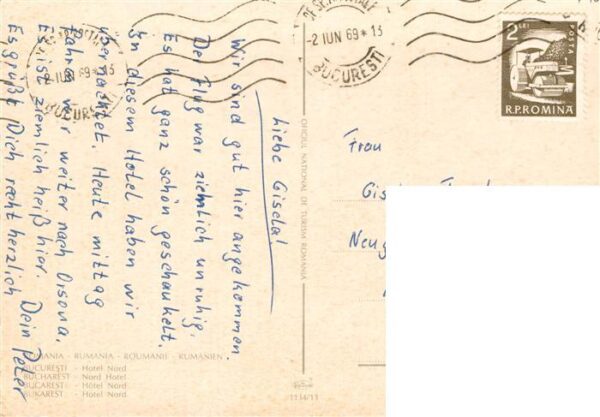 Liebe Gisela!
Wir sind gut hier angekommen.
Der Flug war ziemlich unruhig.
Es hat ganz schön geschaukelt.
In diesem Hotel haben wir
übernachtet. Heute mittag
fahren wir weiter nach Orsova.
Es ist ziemlich heiß hier.
Es grüßt Dich recht herzlich Dein Peter
ROMANIA - RUMANIA - ROUMANIE - RUMANIEN
BUCUREȘTI - Hotel Nord
BUCHAREST - Nord Hotel
BUCAREST - Hôtel Nord
BUKAREST - Hotel Nord
OFICIUL NATIONAL DE TURISM ROMANIA
1114/11
-2 IUN 69 * 13
BUCUREȘTI
2 IUN 69 * 13
BUCUREȘTI
2 LEI
POSTA
R.P. ROMINA
Frau